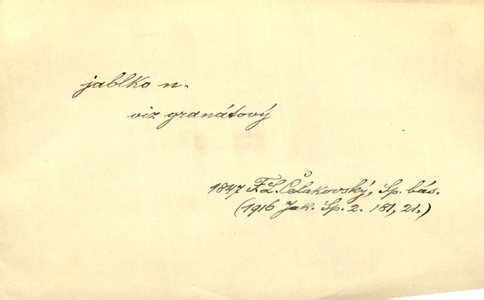 jablko n.
viz granátový
1847 F. L. Čelakovský, Sp. bás.
(1916 Jak. Sp. 2. 181, 21.)